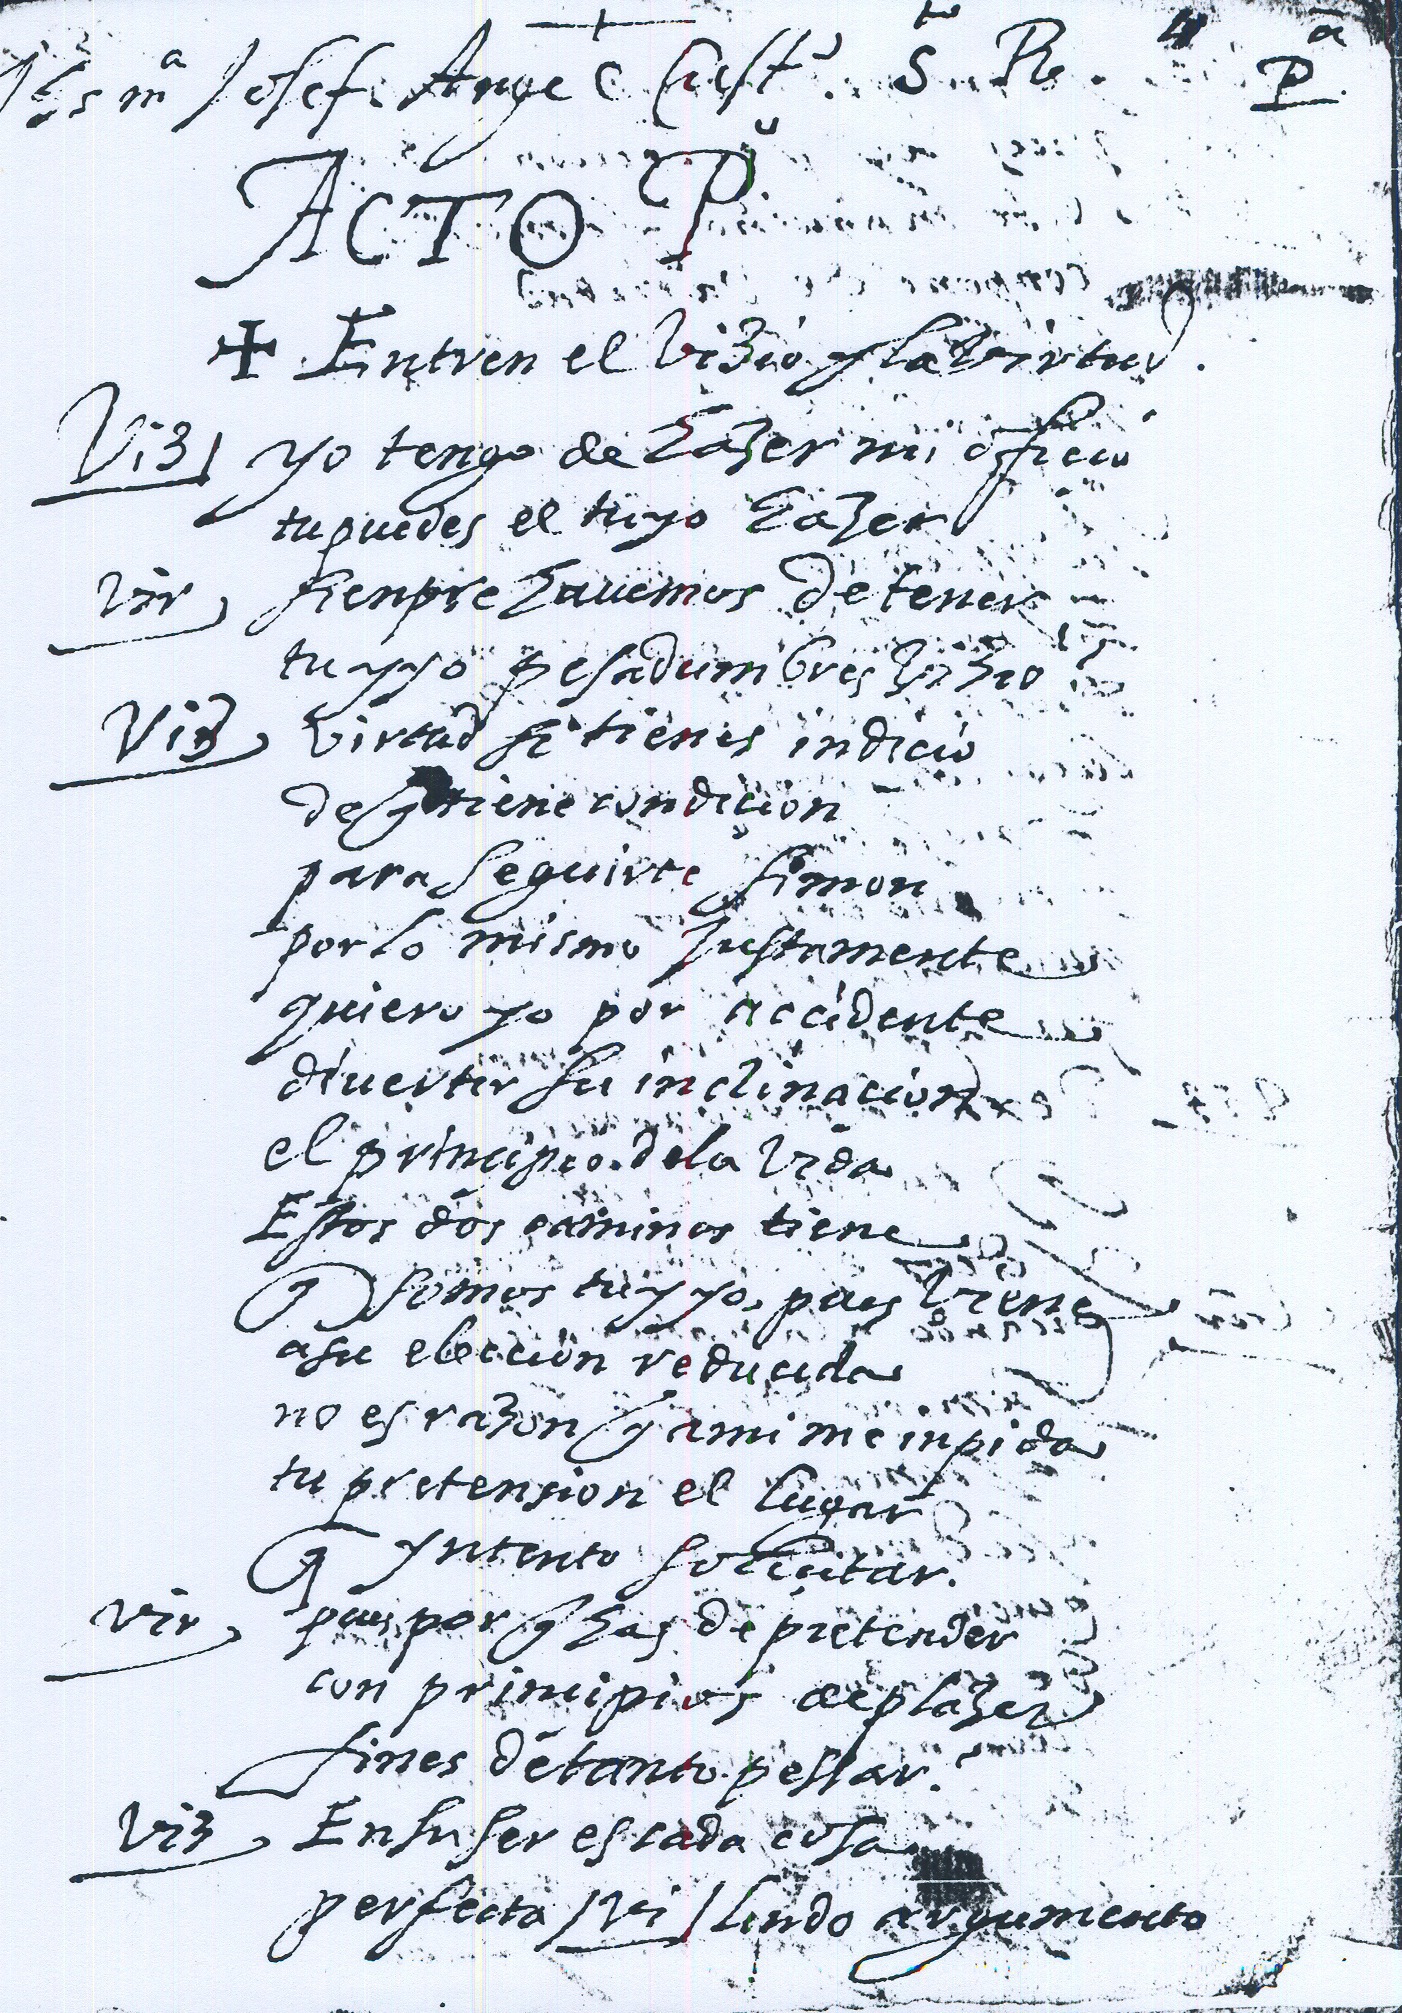 Jhs mª Josef. Angel Cust.º S. R. Pª
ACTO P.º
✠ Entren el Vizio y la Virtud.
Viz yo tengo de hazer mi officio
tu puedes el tuyo hazer
Vir sienpre hauemos de tener
tu y yo pesadumbres Vizio
Viz Virtud si tienes indicio
de q tiene condicion
para seguirte simon
por lo mismo Justamente
quiero yo por accidente
diuertir su inclinacion
el principio dela Vida
Estos dos caminos tiene
q somos tu y yo, pues Viene
a su eleccion reducida
no es razon q a mi me inpida
tu pretension el lugar
q yntento solicitar.
Vir pues por q has de pretender
con principios de plazer
fines de tanto pessar.
Viz En su ser es cada cosa
perfecta / Vi / lindo argumento